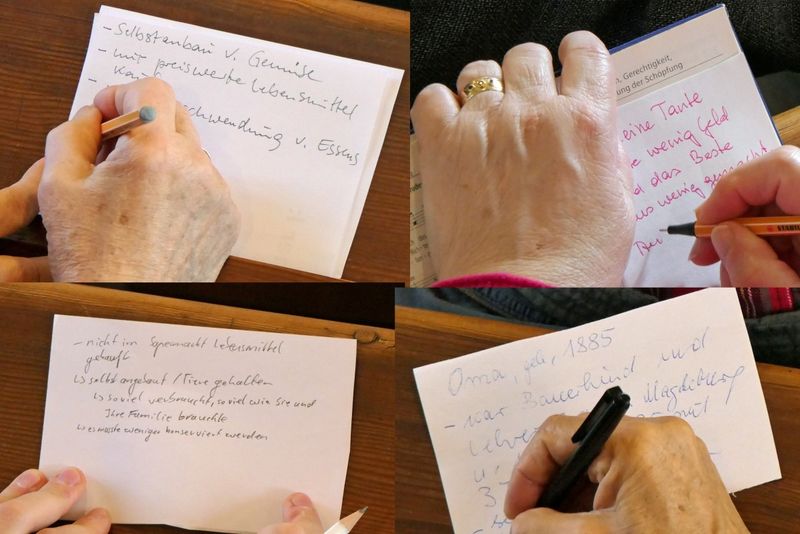 - Selbstanbau v. Gemüse
- mit preiswerte Lebensmittel
schwendung v. Essens
n, Gerechtigkeit,
ung der Schöpfung
eine Tante
wenig Geld
das Beste
wenig gemacht
STAEDTLER
- nicht im Supermarkt Lebensmittel
gekauft
↳ selbst angebaut / Tiere gehalten
↳ soviel verbraucht, soviel wie Sie und
Ihre Familie brauchte
↳ es musste weniger konserviert werden
Oma, geb. 1885
- war Bauerkind und
Magdeburg
mit